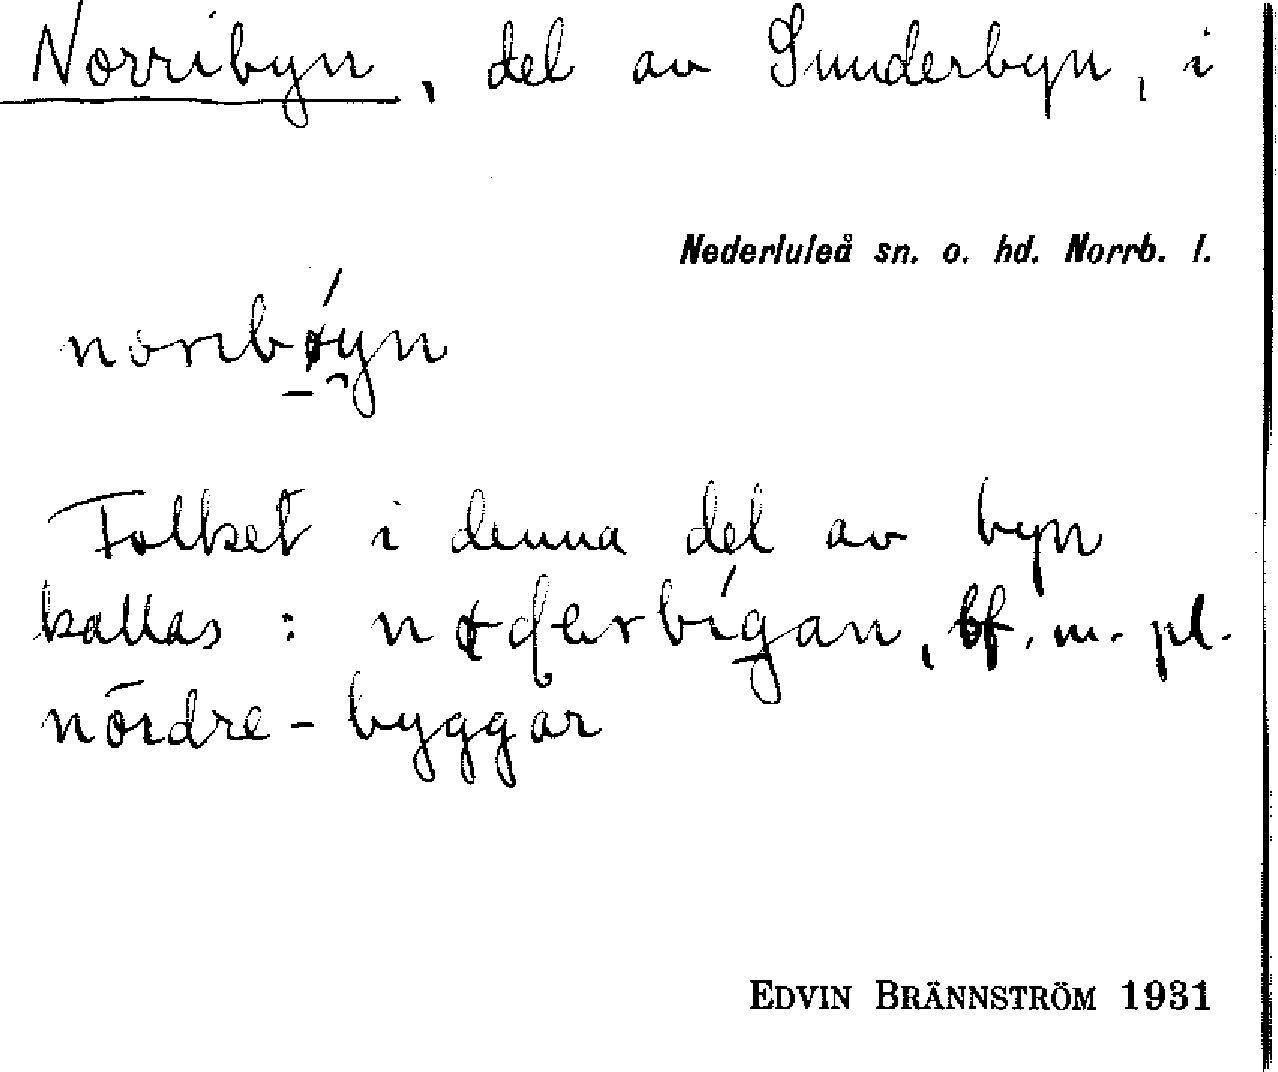 Norribyn, del av Sunderbyn, i
Nederluleå sn. o. hd. Norrb. l.
norribǿyn
Folket i denna del av byn
kallas: nøderbígan, bf. m. pl.
nördre-byggar
EDVIN BRÄNNSTRÖM 1931